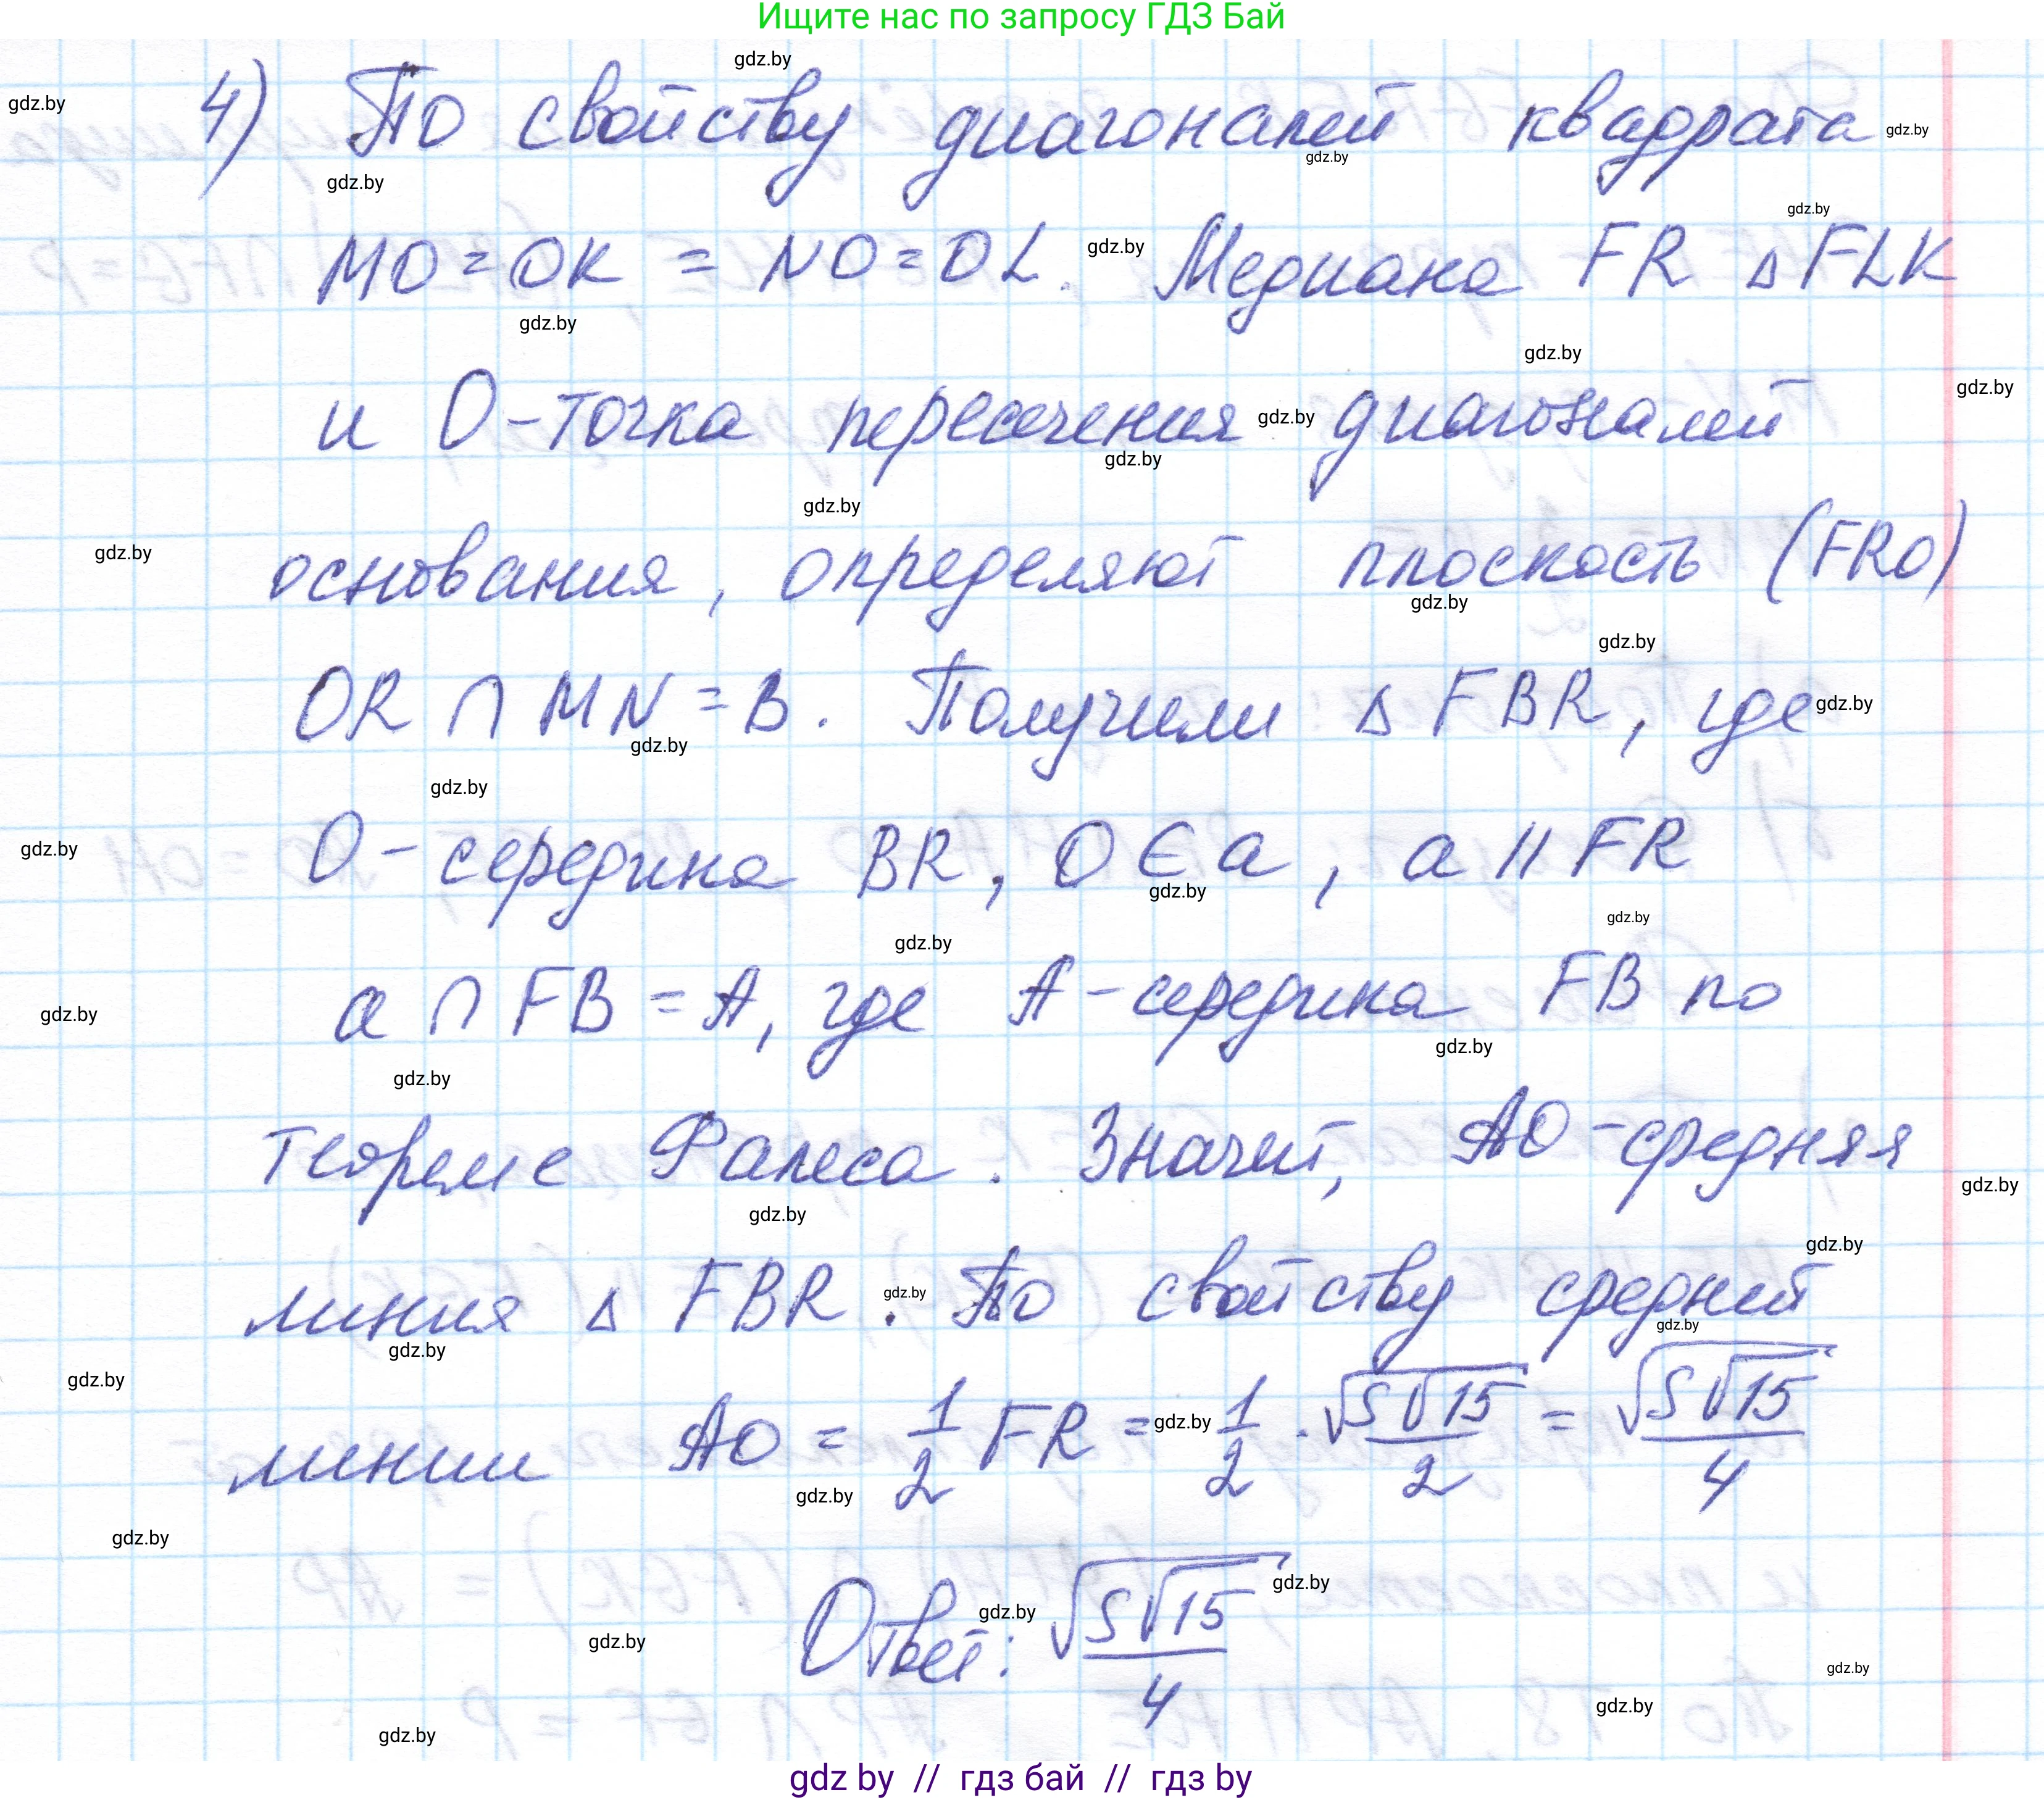 Ищите нас по запросу ГДЗ Бай
4) По свойству диагоналей квадрата
MO = OK = NO = OL. Медиана FR △FLK
и O - точка пересечения диагоналей
основания, определяют плоскость (FRO)
OR ∩ MN = B. Получили △ FBR, где
O - середина BR, O ∈ a, a || FR
a ∩ FB = A, где A - середина FB по
теореме Фалеса. Значит, AO - средняя
линия △ FBR. По свойству средней
линии AO = 1/2 FR = 1/2 · √(S√15)/2 = √(S√15)/4
Ответ: √(S√15)/4
gdz by // гдз бай // гдз by